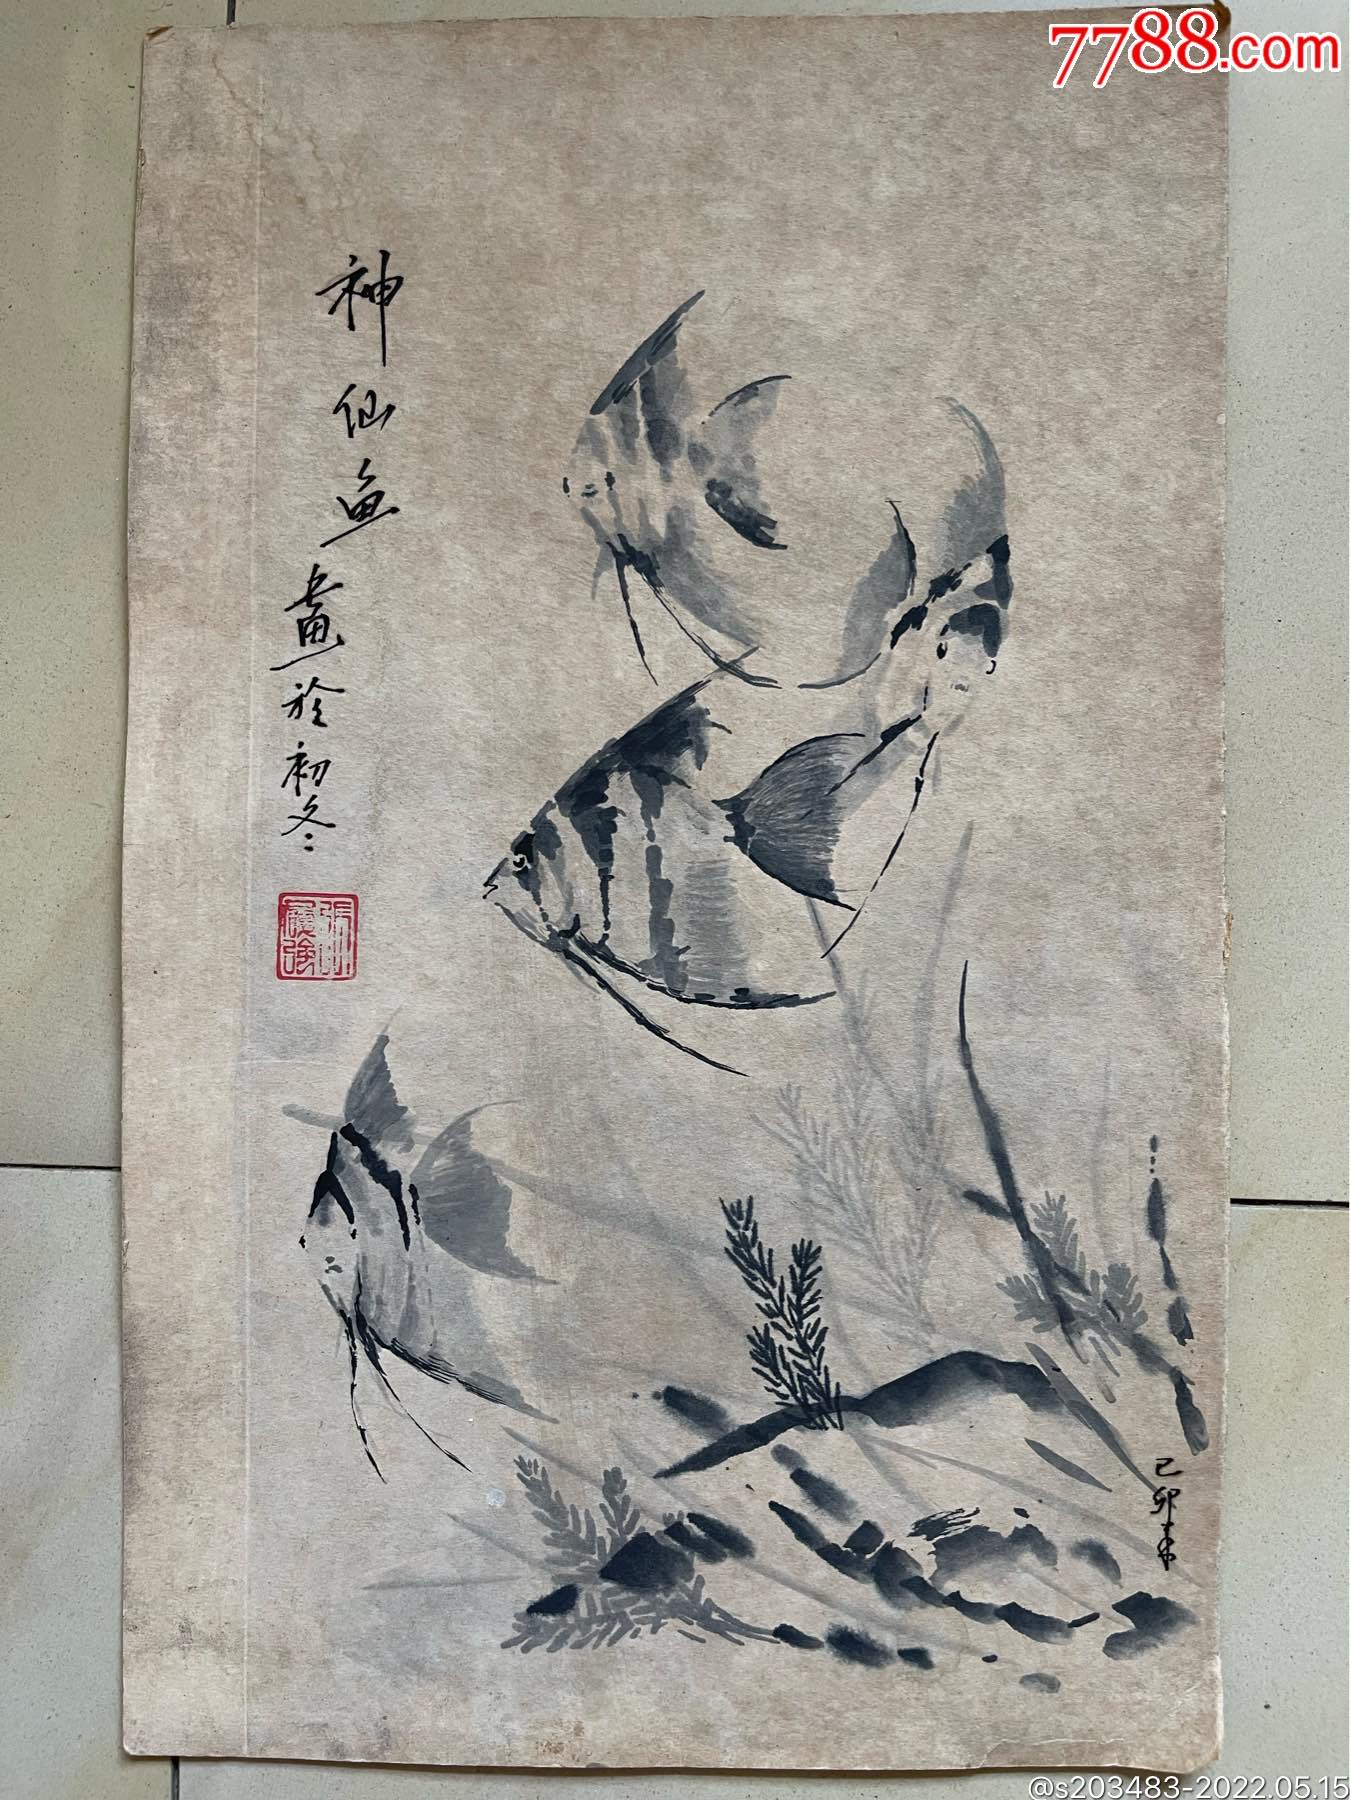 7788.com
神仙鱼
畫於初冬
己卯年
@s203483-2022.05.15